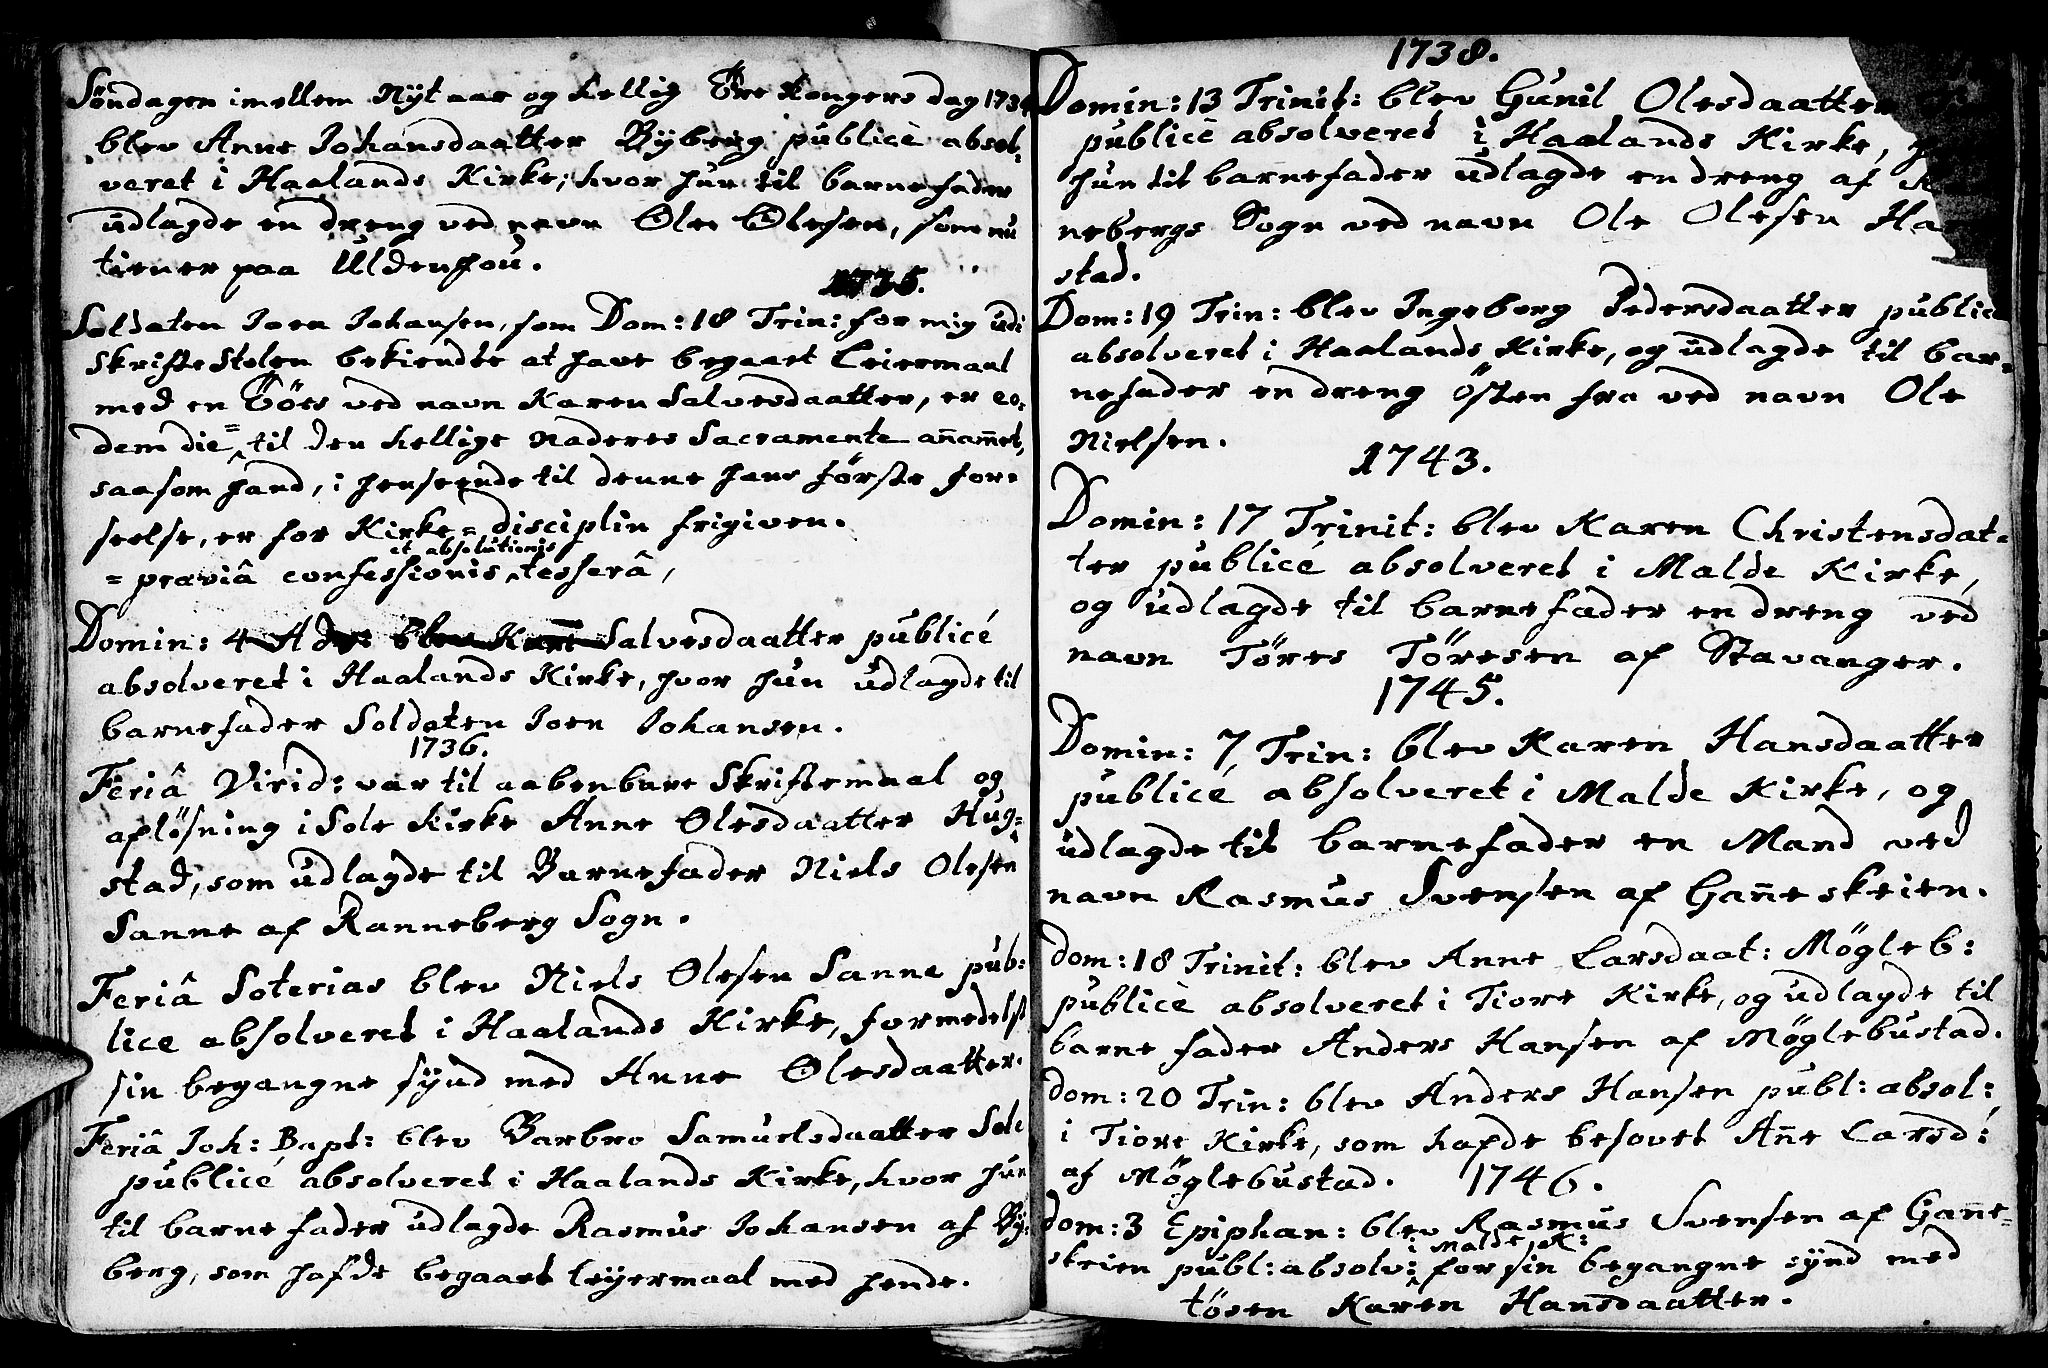 Søndagen imellem Nyt aar og hellig Tre Kongers dag 1734
blev Anne Johansdaatter Byberg publicè absol-
veret i Haalands Kirke; hvor hun til barnefader
udlagde en dreng ved navn Ole Olesen, som nu
tiener paa Uldenhou.
1735.
Soldaten Joen Johansen, som Dom: 18 Trin: for mig udi
Skrifte Stolen bekiendte at have begaaet Leiermaal
med en Töes ved navn Karen Salvesdaatter, er eo-
dem die = til den hellige Naderes Sacramente añam̃et,
saasom hand, i henseende til denne hans første for-
seelse, er for Kirke = disciplin frigiven.
et absolutionis
= præviâ confessionis tesserâ,
Domin: 4 Adv: blev Kari Salvesdaatter publicé
absolveret i Haalands Kirke, hvor hun udlagde til
barnefader Soldaten Joen Johansen.
1736.
Feriâ Virid: var til aabenbare Skriftemaal og
afløsning i Sole Kirke Anne Olesdaatter Hug-
stad, som udlagde til Barnefader Niels Olesen
Sanne af Ranneberg Sogn.
Feriâ Soterias blev Niels Olesen Sanne pub-
lice absolveret i Haalands Kirke, formedelst
sin begangne synd med Anne Olesdaatter.
Feriâ Joh: Bapt: blev Barbro Samuelsdaatter Sole
publicé absolveret i Haalands Kirke, hvor hun
til barnefader udlagde Rasmus Johansen af By-
berg, som hafde begaaet leyermaal med hende.
1738.
Domin: 13 Trinit: blev Gunil Olesdaatter
publicè absolveret i Haalands Kirke,
hun til barnefader udlagde en dreng af
nebergs Sogn ved navn Ole Olesen Ha
stad.
Dom: 19 Trin: blev Ingeborg Pedersdaatter public
absolveret i Haalands Kirke, og udlagde til bar-
nefader en dreng östen fra ved navn Ole
Nielsen.
1743.
Domin: 17 Trinit: blev Karen Christensdat-
ter publicé absolveret i Malde Kirke,
og udlagde til barnefader en dreng ved
navn Töres Töresen af Stavanger.
1745.
Domin: 7, Trin: blev Karen Hansdaatter
publicé absolveret i Malde Kirke, og
udlagde til barnefader en Mand ved
navn Rasmus Svensen af Gañeskeien.
Dom: 18 Trinit: blev Anne Larsdaat: Mögleb:
publicè absolveret i Tiore Kirke, og udlagde til
barne fader Anders Hansen af Möglebustad.
Dom: 20 Trin: blev Anders Hansen publ: absol:
i Tiore Kirke, som hafde besovet Añe Larsd:
af Möglebustad. 1746.
Dom: 3 Epiphan: blev Rasmus Svensen af Gañe-
i Malde K:
skeien publ: absolv: for sin begangne synd med
tösen Karen Hansdaatter.